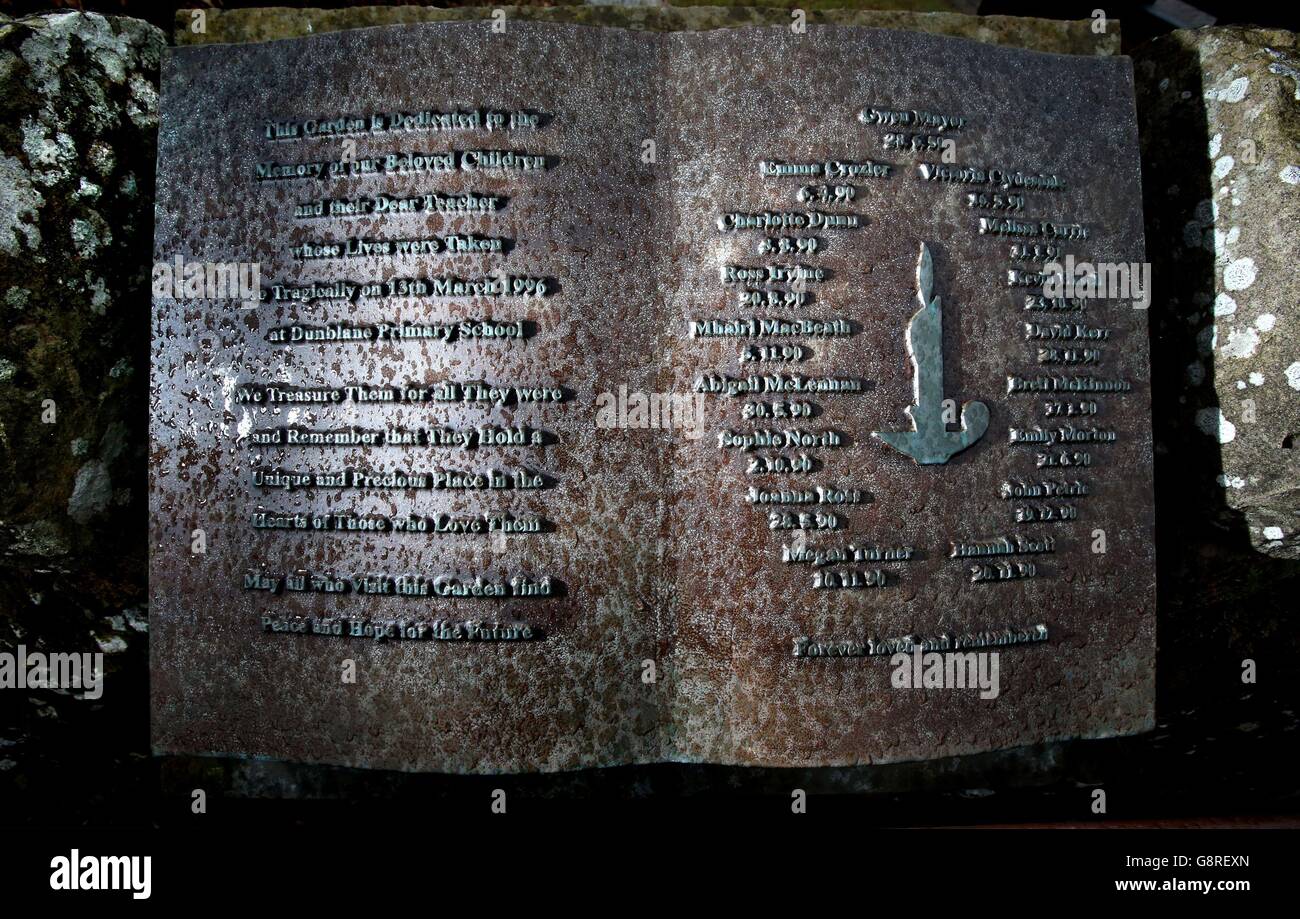 This Garden is Dedicated to the
Memory of our Beloved Children
and their Dear Teacher
whose Lives were Taken
so Tragically on 13th March 1996
at Dunblane Primary School
We Treasure Them for all They were
and Remember that They Hold a
Unique and Precious Place in the
Hearts of Those who Love Them
May all who visit this Garden find
Peace and Hope for the Future
Gwen Mayor
Emma Crozier
Victoria Clydesdale
Charlotte Dunn
Melissa Currie
Ross Irvine
Kevin Hasell
Mhairi MacBeath
5.11.90
David Kerr
Abigail McLennan
Brett McKinnon
Sophie North
2.10.90
Emily Morton
Joanna Ross
John Petrie
Megan Turner
10.11.90
Hannah Scott
Forever loved and remembered
alamy
alamy
Image ID: G8REXN
www.alamy.com